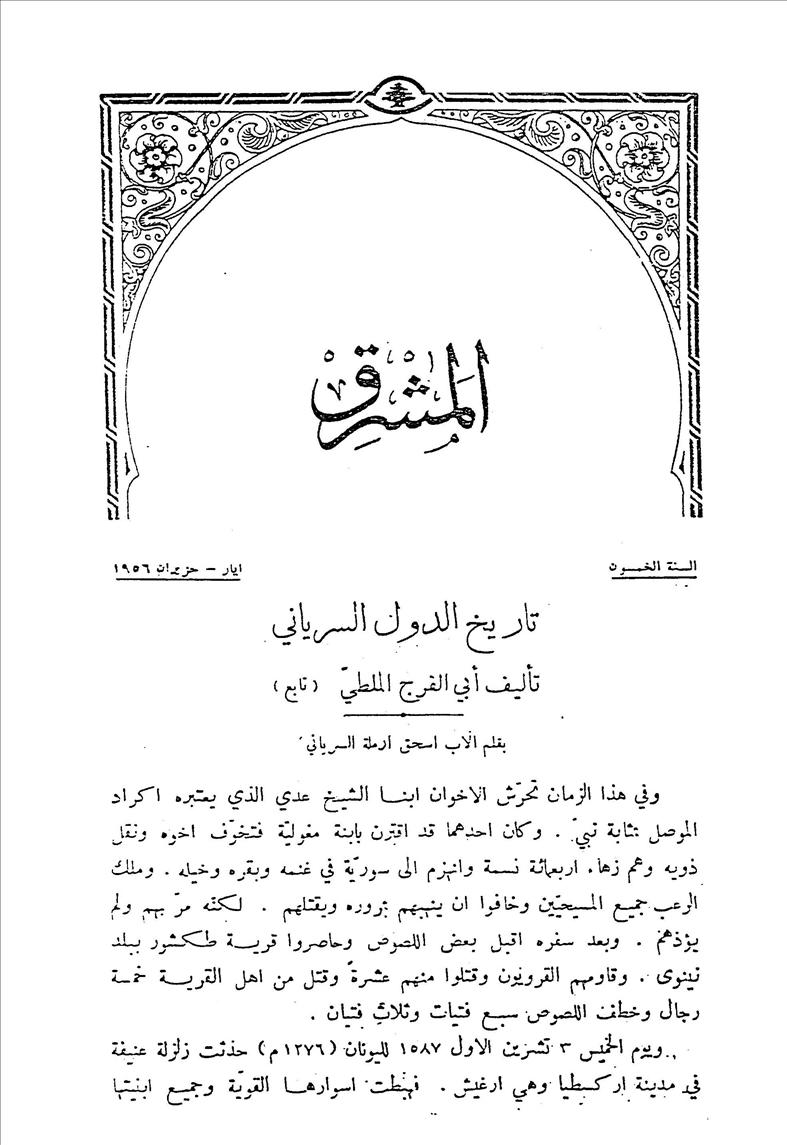 المَشْرِق
السنة الخمسون
ايار - حزيران ١٩٥٦
تاريخ الدول السرياني
تأليف أبي الفرج الملطيّ (تابع)
بقلم الاب اسحق ارملة السرياني
وفي هذا الزمان تحرّش الاخوان ابنا الشيخ عدي الذي يعتبره اكراد
الموصل بمثابة نبيّ . وكان احدهما قد اقترن بابنة مغوليّة فتخوّف اخوه ونقل
ذويه وهم زهاء اربعمائة نسمة وانهزم الى سوريّة في غنمه وبقره وخيله . وملك
الرعب جميع المسيحيّين وخافوا ان ينهبهم بمروره ويقتلهم . لكنّه مرّ بهم ولم
يؤذهم . وبعد سفره اقبل بعض اللصوص وحاصروا قرية طكشور ببلد
نينوى . وقاومهم القرويّون وقتلوا منهم عشرةً وقتل من اهل القرية خمسة
رجال وخطف اللصوص سبع فتيات وثلاث فتيان .
ويوم الخميس ٣ تشرين الاول ١٥٨٧ لليونان (١٢٧٦ م) حدثت زلزلة عنيفة
في مدينة اركسطيا وهي ارغيش . فهبطت اسوارها القويّة وجميع ابنيتها